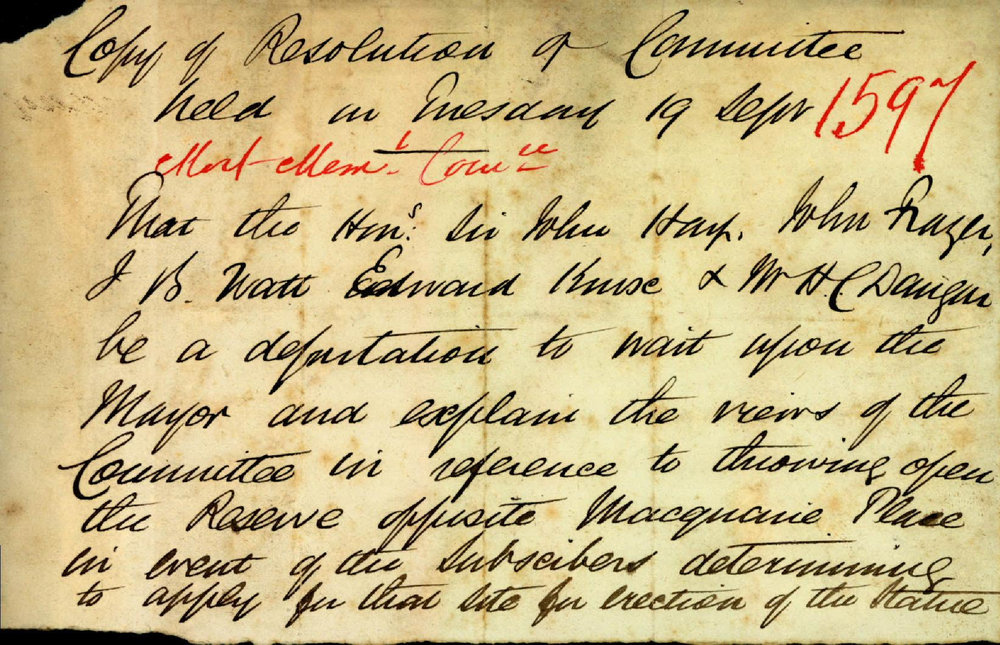 Copy of Resolution of Committee
held on Tuesday 19 Sept 1597
Mort Meml. Comee
That the Hons. Sir John Hay, John Frazer,
J B. Watt Edward Knox & Mr H. C Dangar
be a deputation to wait upon the
Mayor and explain the views of the
Committee in reference to throwing open
the Reserve opposite Macquarie Place
in event of the Subscibers determining
to apply for that site for erection of the Statue